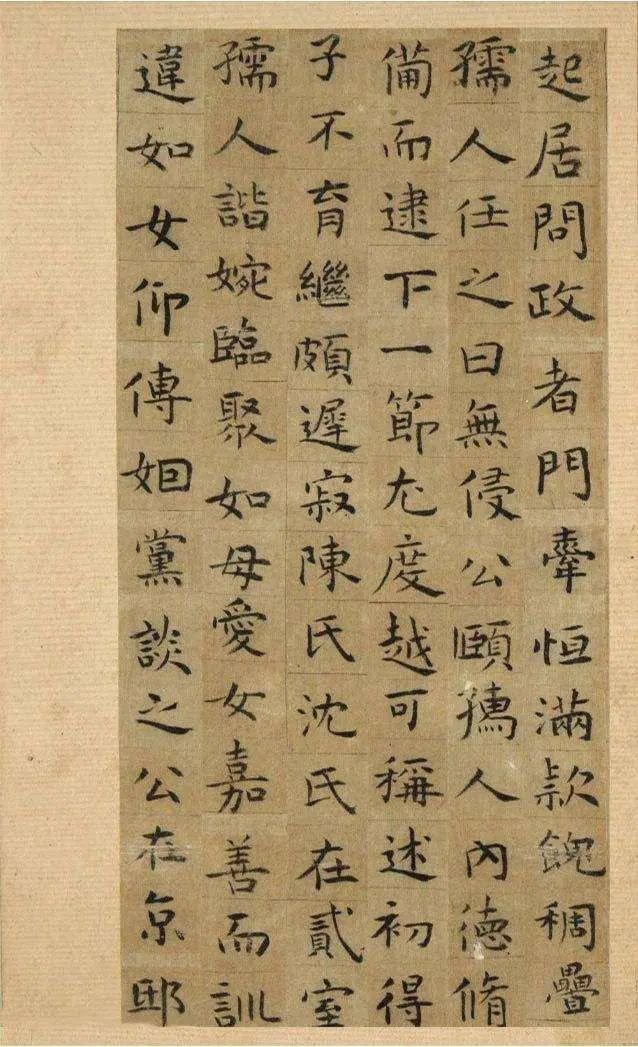 起居問政者門牽恒滿款餽稠疊
孺人任之曰無侵公頤孺人內德脩
備而逮下一節尤度越可稱述初得
子不育繼頗遲寂陳氏沈氏在貳室
孺人諧婉臨聚如母愛女嘉善而訓
違如女仰傅姆黨談之公在京邸